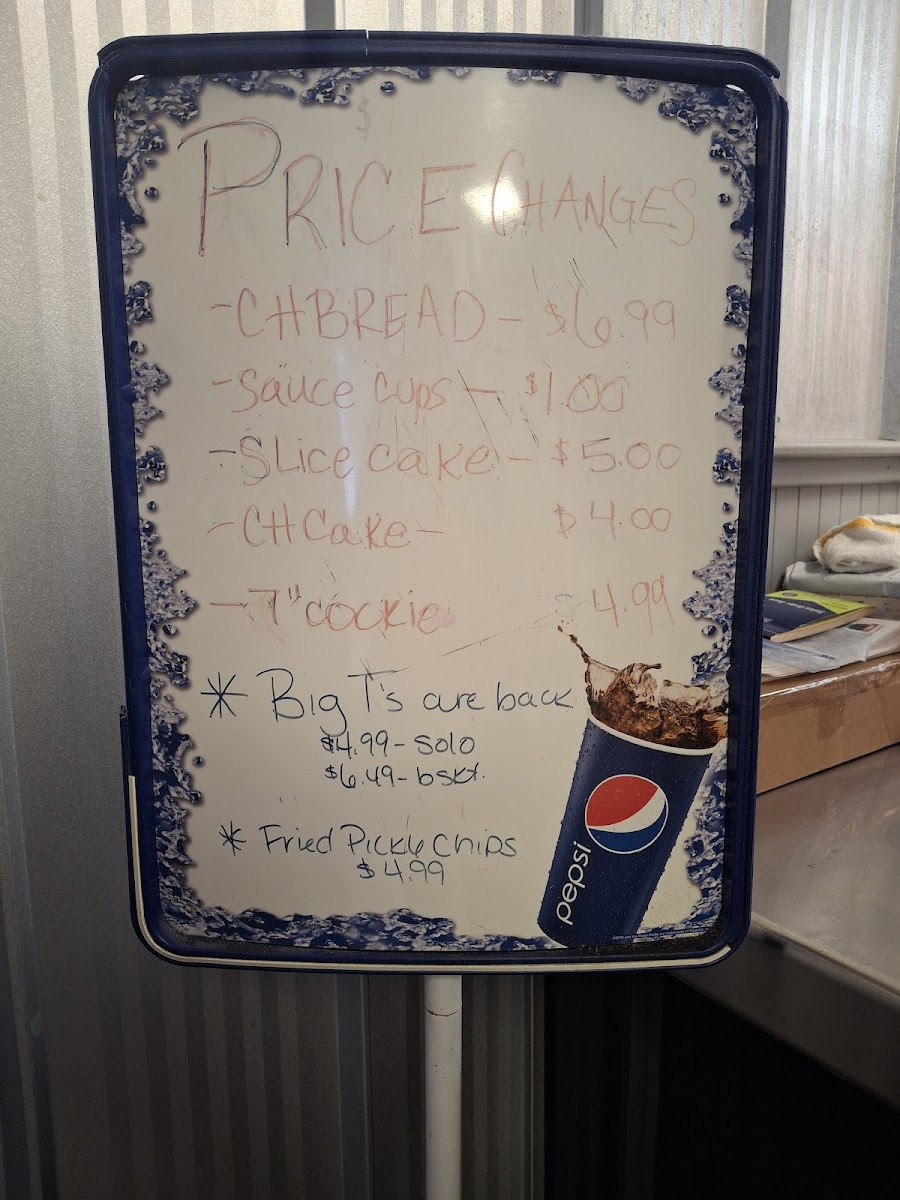 $
PRICE CHANGES
- CHBREAD - $6.99
- Sauce cups - $1.00
- SLice cake - $5.00
- CH Cake - $4.00
- 7" cookie $4.99
* Big T's are back
$4.99 - Solo
$6.49 - bskt.
* Fried Pickle Chips
$4.99
pepsi